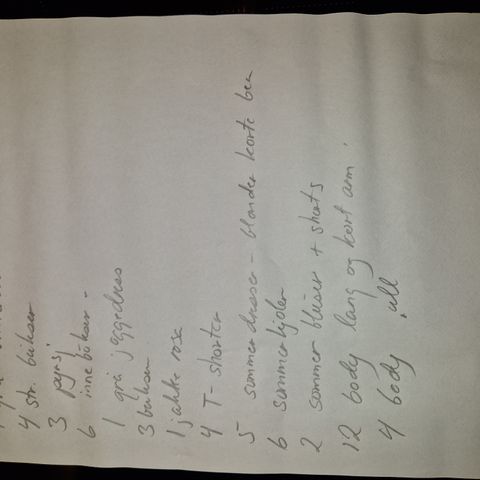 4 str. bukser
3 pysj
6 inne bukser.
1 grå joggedress
3 bukser
1 jakke rosa
4 T-shorter
5 sommerdresser - blander korte ben
6 sommerkjoler
2 sommer bluser + shorts
12 body lang og kort arm.
4 body ull